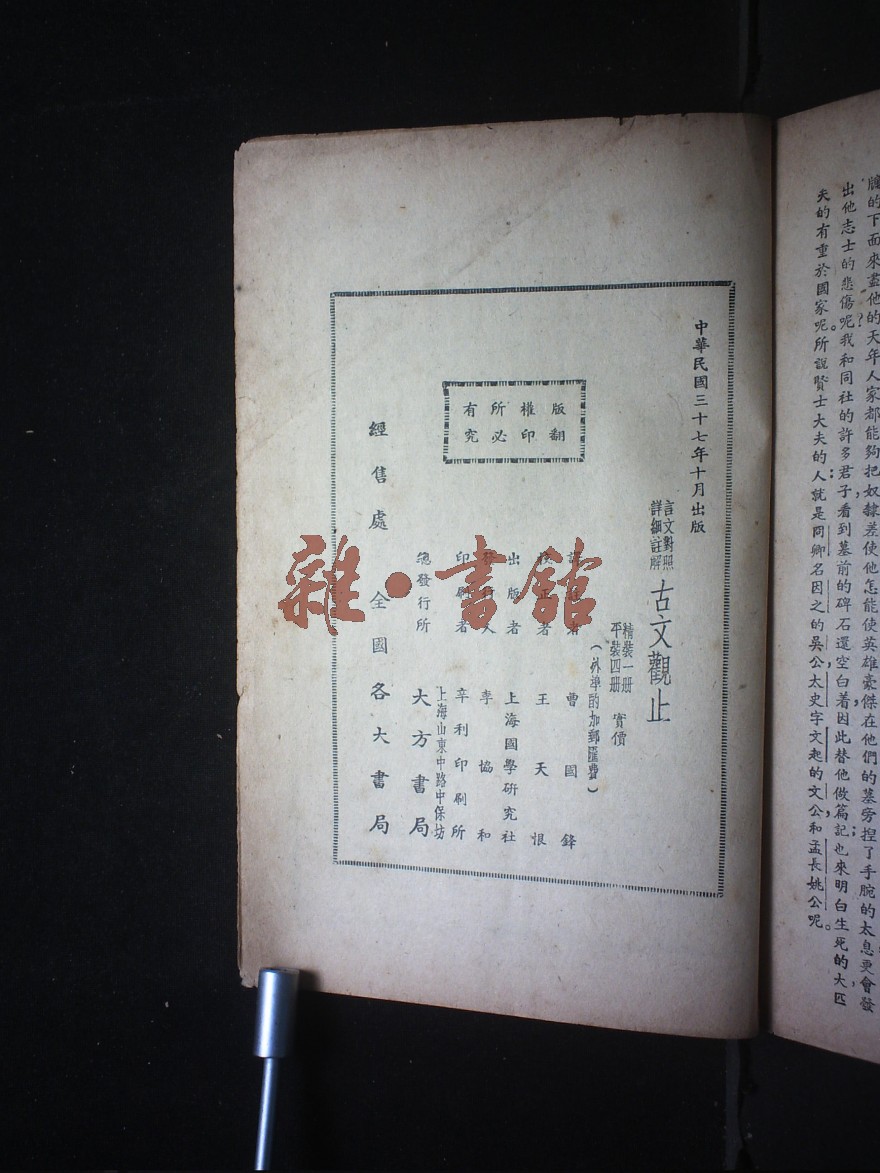 臟的下面來盡他的天年人家都能夠把奴隸差使他怎能使英雄豪傑在他們的墓旁捏了手腕的太息更會發
出他志士的悲傷呢?我和同社的許多君子看到墓前的碑石還空白着因此替他做篇記也來明白生死的大匹
夫的有重於國家呢。所說賢士大夫的人就是同卿名因之的吳公太史字文起的文公和孟長姚公呢。
中華民國三十七年十月出版
言文對照
詳細註解
古文觀止
精裝一册
平裝四册
實價
(外埠酌加郵匯費)
者 曹國鋒
校正者 王天恨
出版者 上海國學研究社
發行人 李協和
印刷者 辛利印刷所
上海山東中路中保坊
總發行所 大方書局
經售處 全國各大書局
版權所有
翻印必究
雜·書館